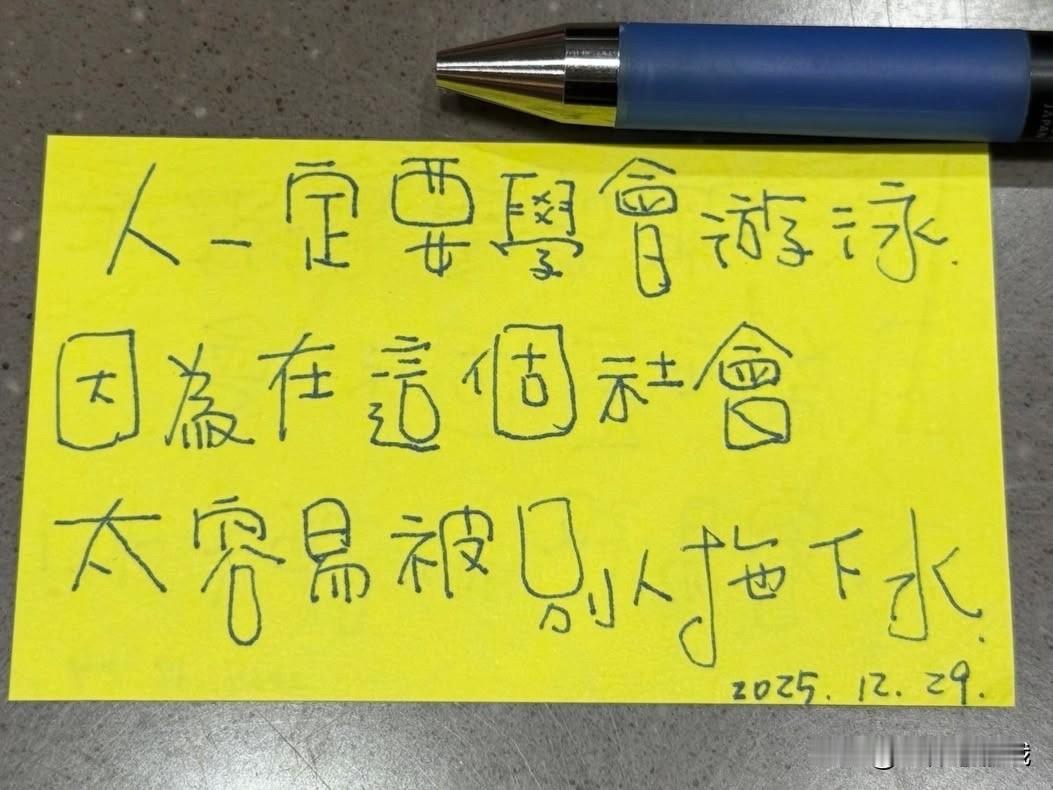 人一定要學會游泳.
因為在這個社會
太容易被別人拖下水.
2025.12.29.
JAPAN